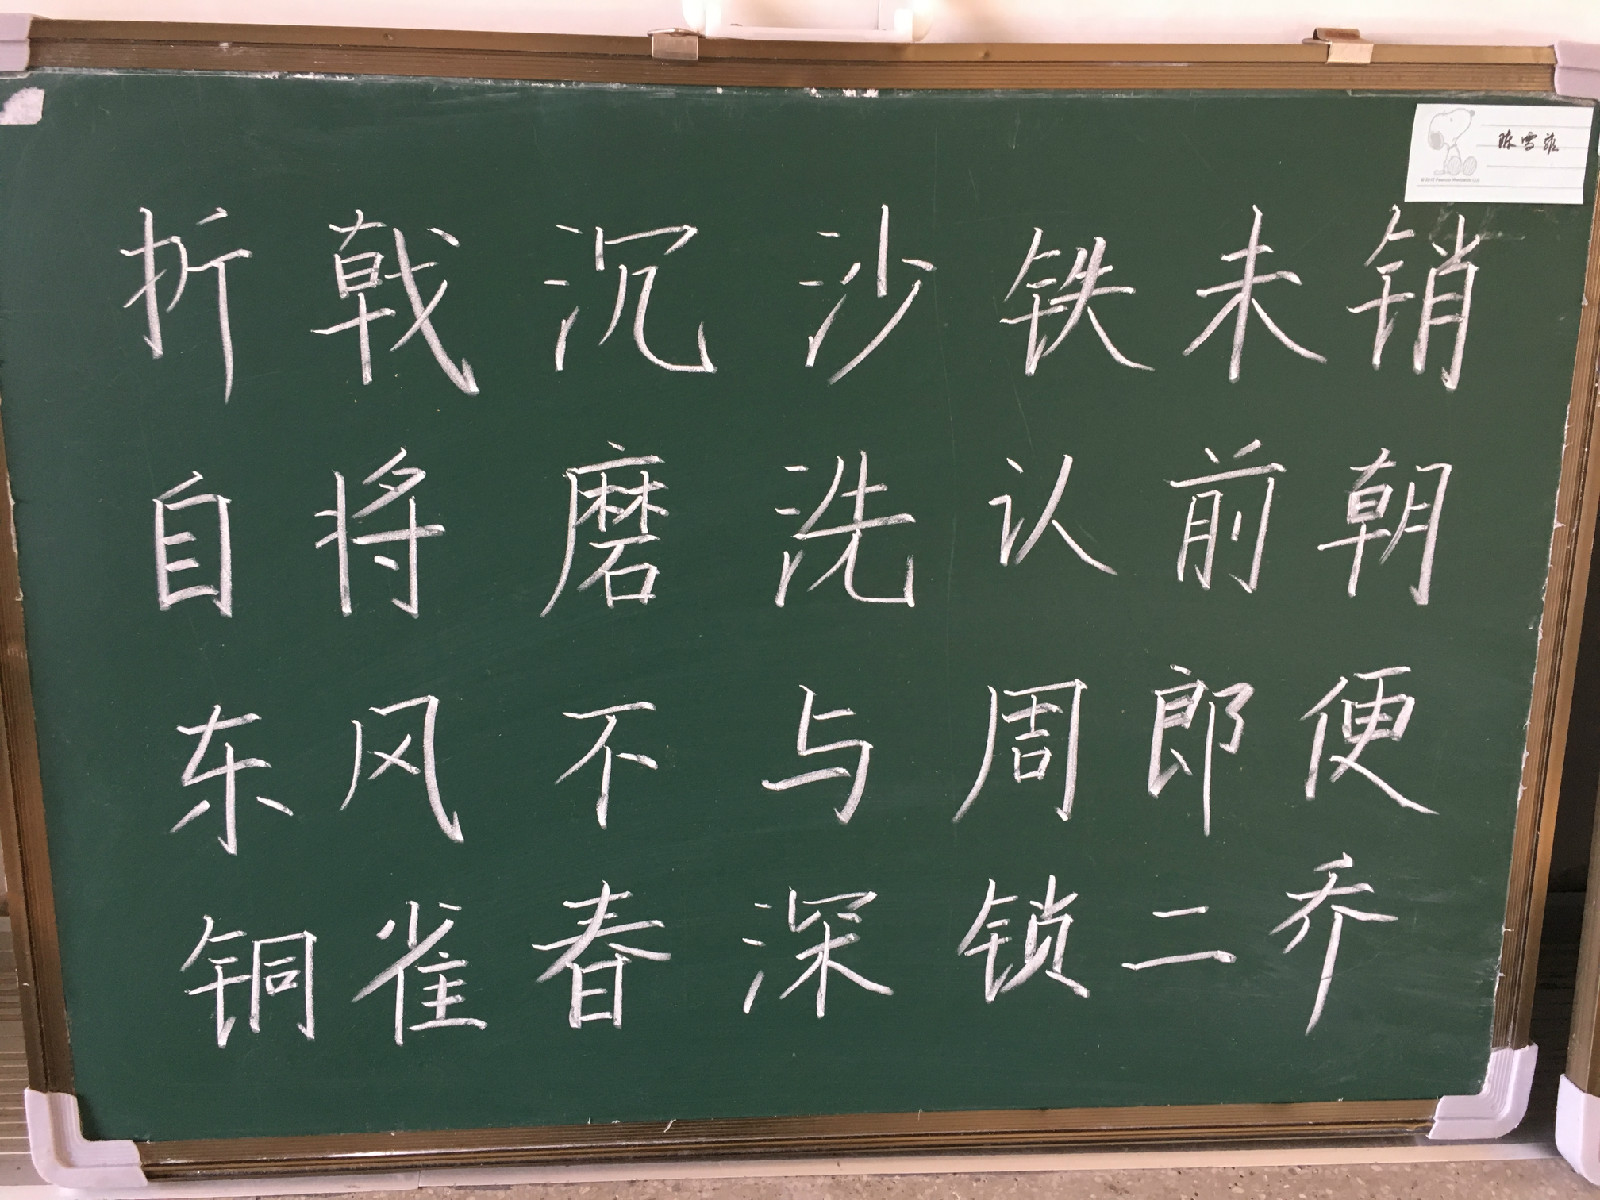 陈雪菲
折戟沉沙铁未销
自将磨洗认前朝
东风不与周郎便
铜雀春深锁二乔